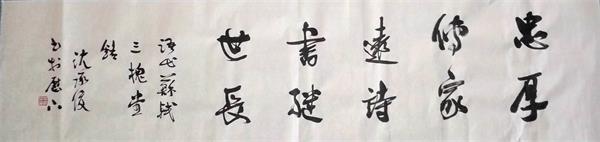 忠厚
傳家
遠詩
書繼
世長
語出蘇軾
三槐堂
銘
書於歷下